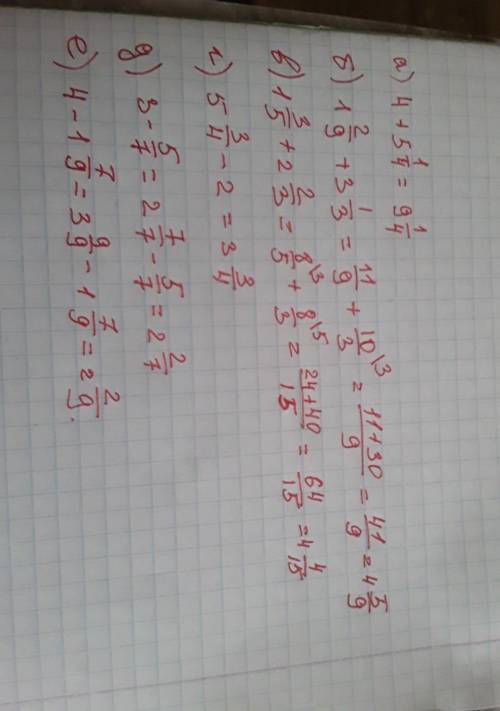 а) 4 + 5 1/4 = 9 1/4
б) 1 2/9 + 3 1/3 = 11/9 + 10/3 \3 = 11+30/9 = 41/9 = 4 5/9
в) 1 3/5 + 2 2/3 = 8/5 \3 + 8/3 \5 = 24+40/15 = 64/15 = 4 4/15
г) 5 3/4 - 2 = 3 3/4
д) 3 - 5/7 = 2 7/7 - 5/7 = 2 2/7
е) 4 - 1 7/9 = 3 9/9 - 1 7/9 = 2 2/9.